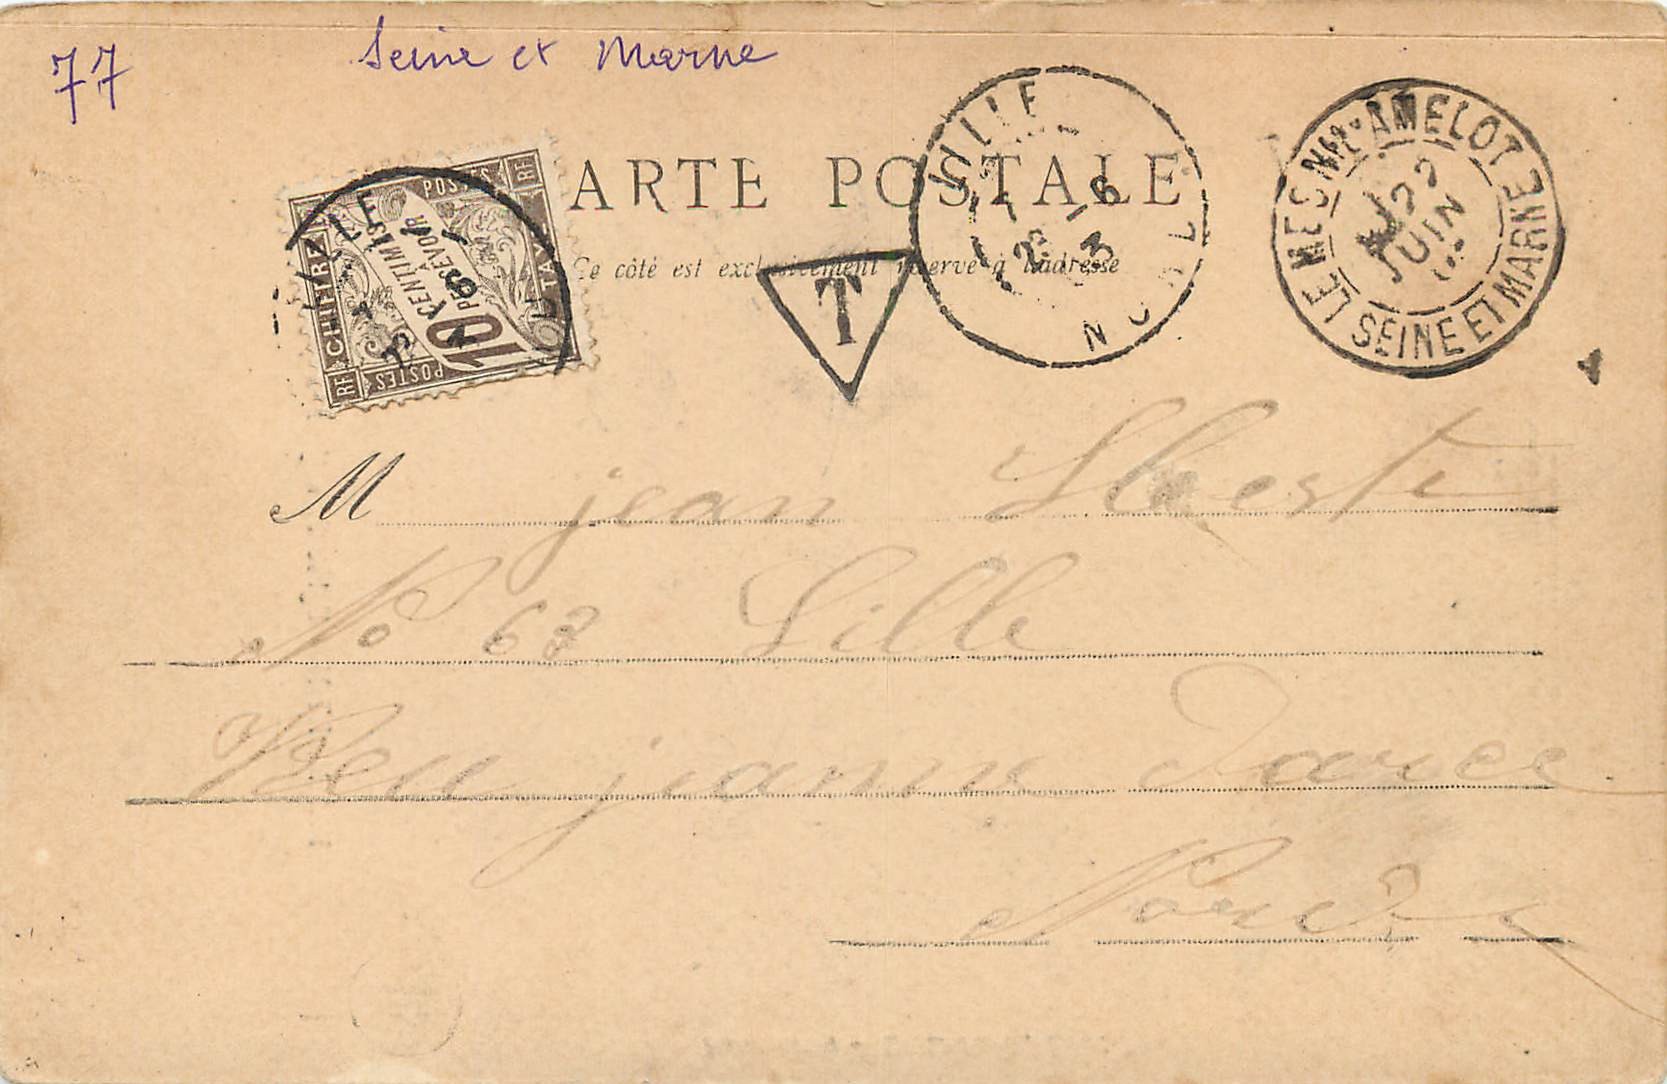 77 Seine et Marne
CARTE POSTALE
Ce côté est exclusivement réservé à l'adresse
RF POSTES RF
CHIFFRE TAXE
10 CENTIMES
À PERCEVOIR
POSTES
RF
LILLE
T
LILLE
6
NORD
LE MESNIL-AMELOT
22
JUIN
SEINE ET MARNE
M jean
No 63 Lille
jeanne Darce
Nord